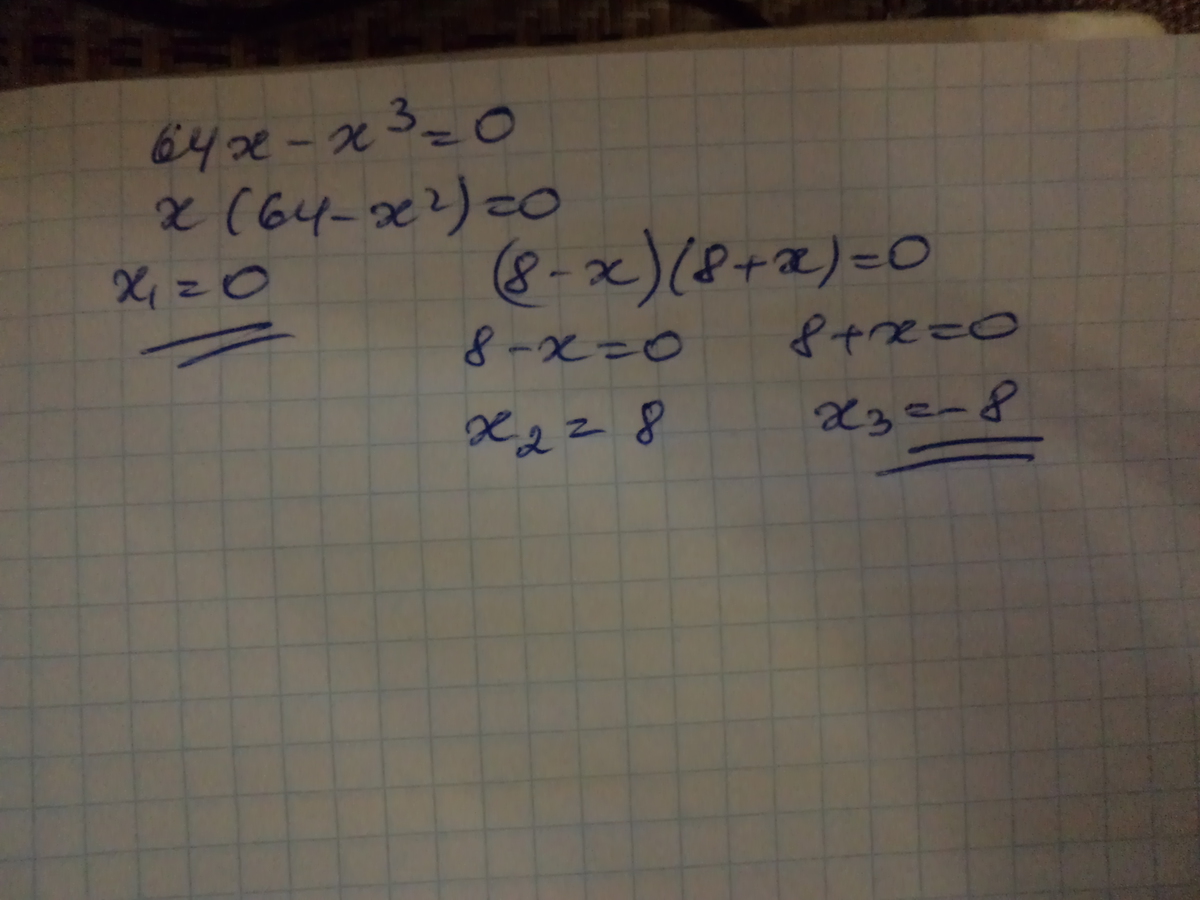 64x - x³ = 0
x (64 - x²) = 0
x₁ = 0 (8 - x)(8 + x) = 0
8 - x = 0 8 + x = 0
x₂ = 8 x₃ = - 8